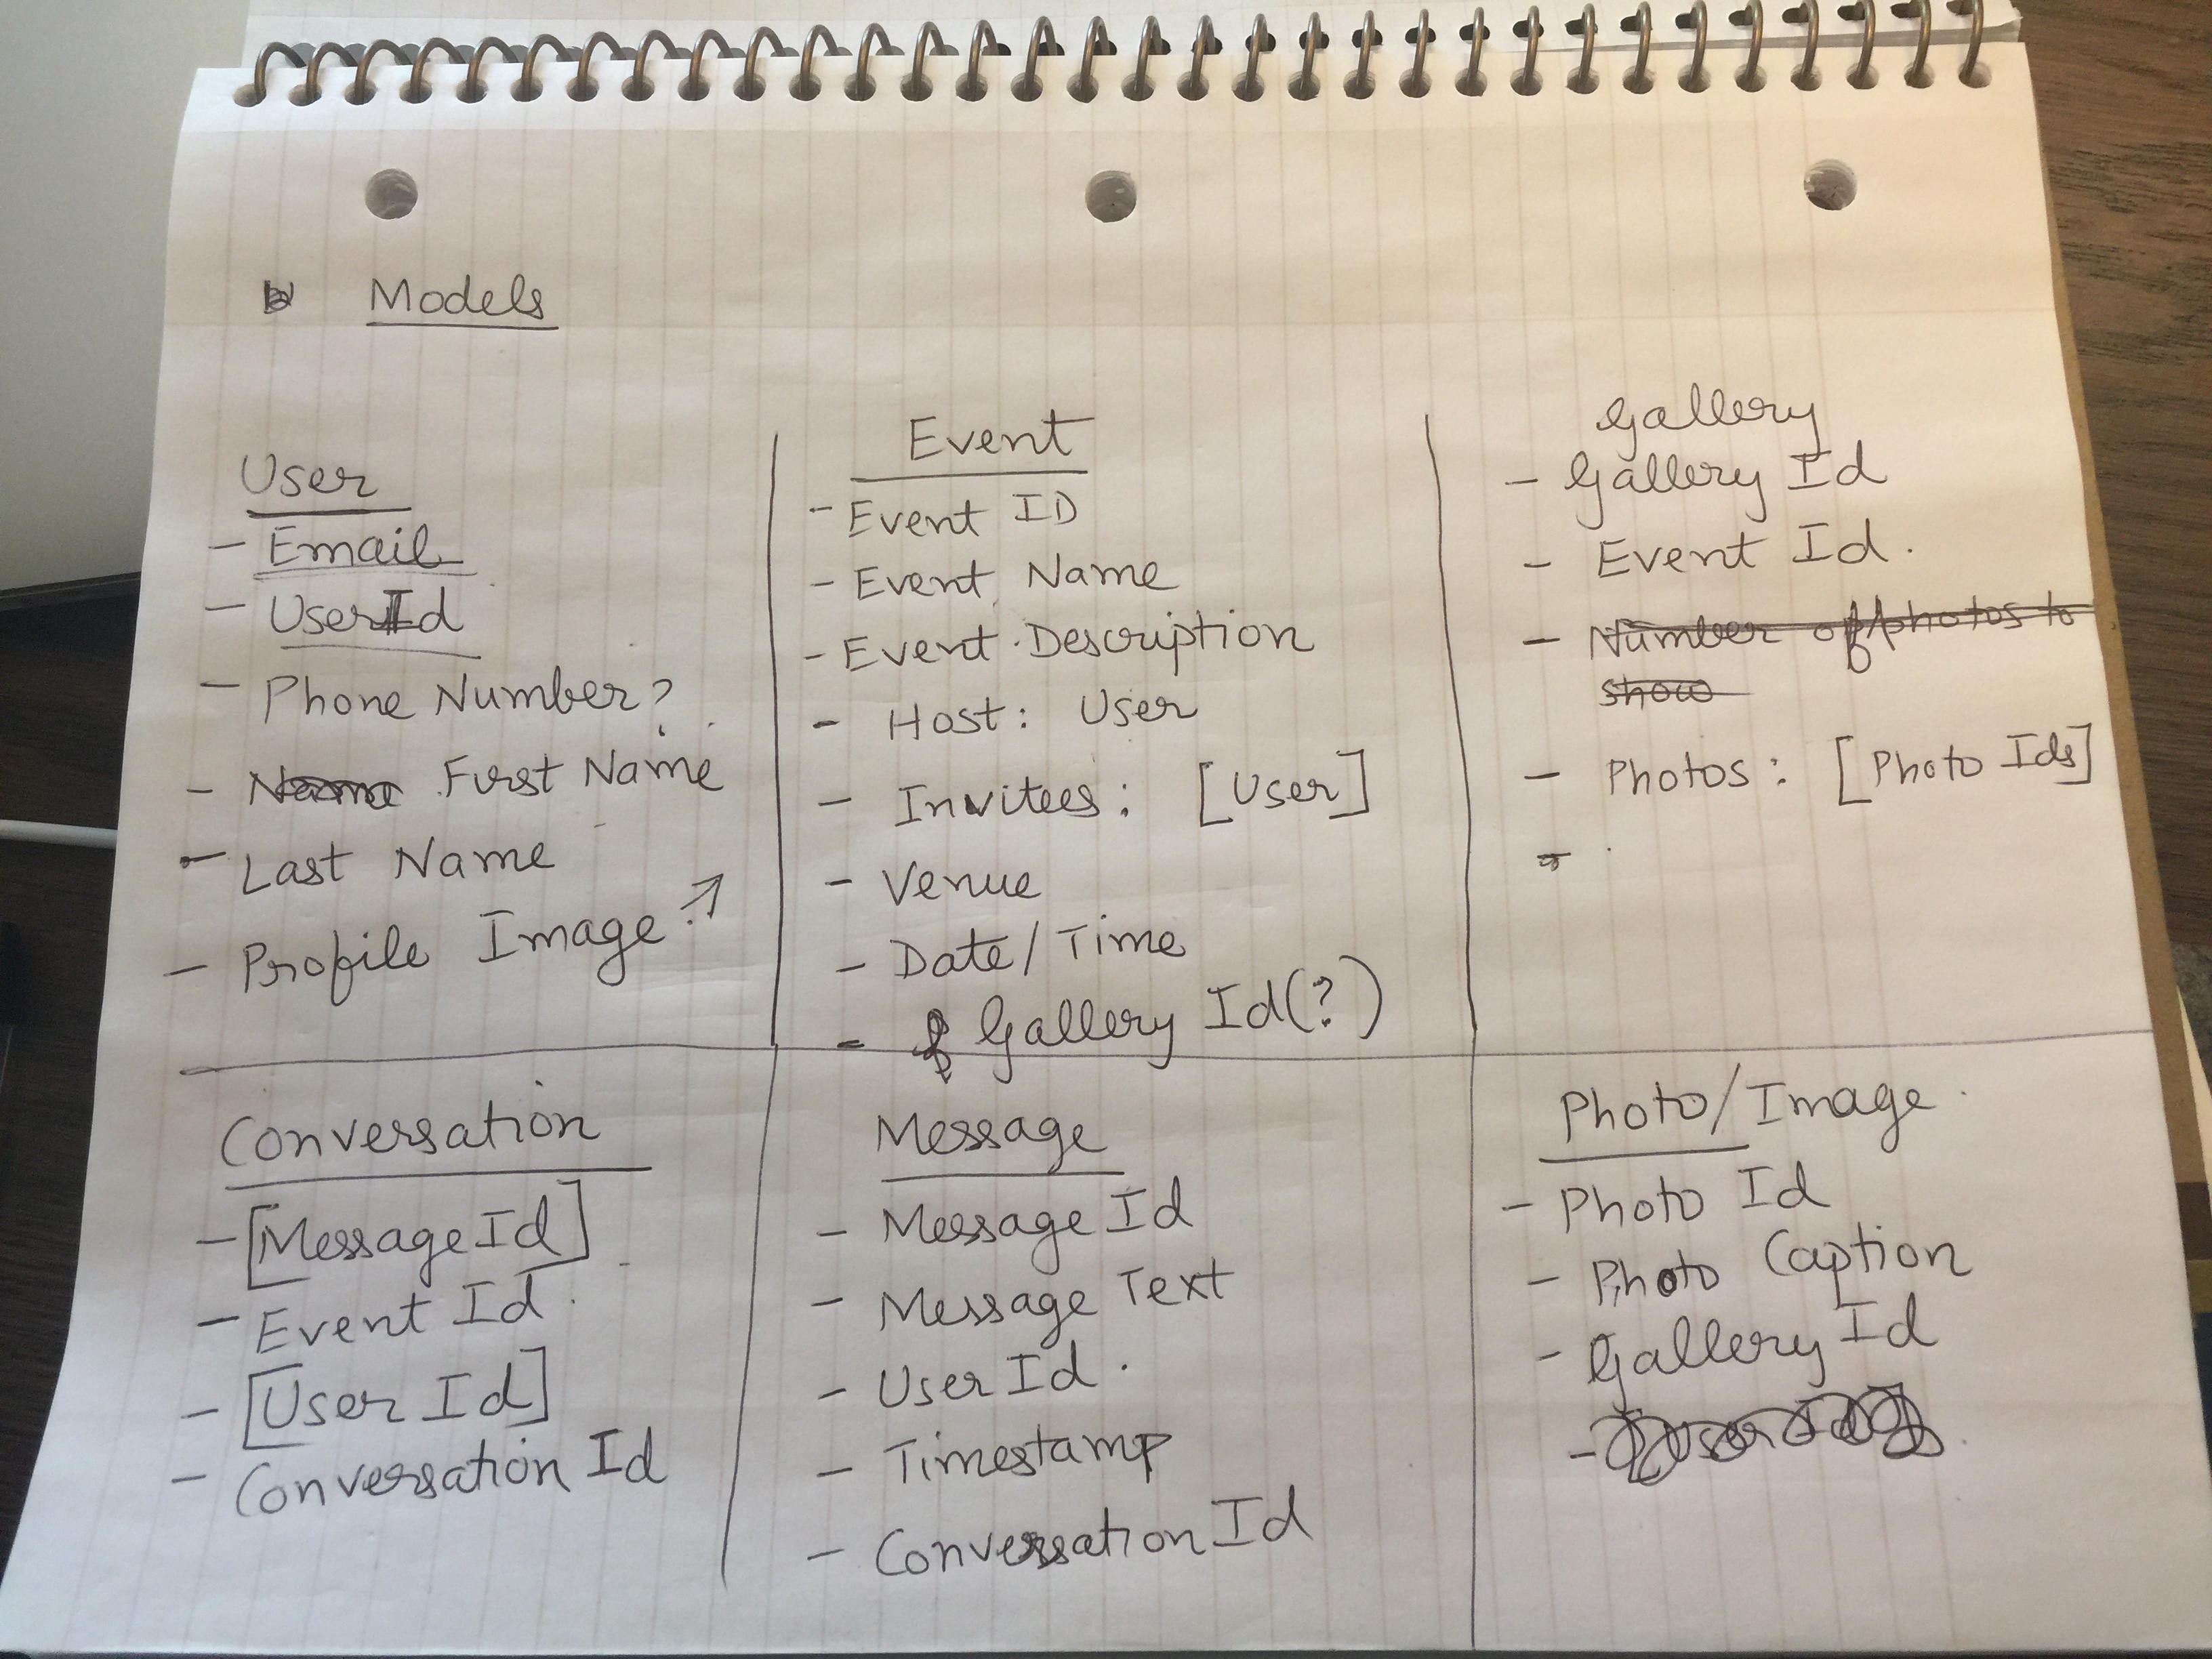 Models
User
- Email
- UserId
- Phone Number?
- First Name
- Last Name
- Profile Image ?
Event
- Event ID
- Event Name
- Event Description
- Host: User
- Invitees: [User]
- Venue
- Date/Time
- Gallery Id(?)
Gallery
- Gallery Id
- Event Id.
- Number of photos to
show
- Photos: [Photo Ids]
-
Conversation
- [Message Id]
- Event Id.
- [User Id]
- Conversation Id
Message
- Message Id
- Message Text
- User Id.
- Timestamp
- Conversation Id
Photo/Image
- Photo Id
- Photo Caption
- Gallery Id